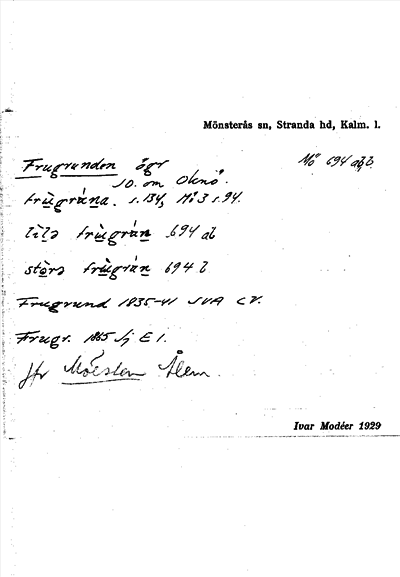 Mönsterås sn, Stranda hd, Kalm. l.
Frugrunden ögr Mö 694 a,b.
SO. om Oknö.
frùgrúna. s. 134, Mö 3 s. 94.
lìlə frùgrún 694 a
stòrə frùgrún 694 b
Frugrund 1835-41 SVA CV.
Frugr. 1865 Sj E 1.
Jfr Möesten Ålem.
Ivar Modéer 1929